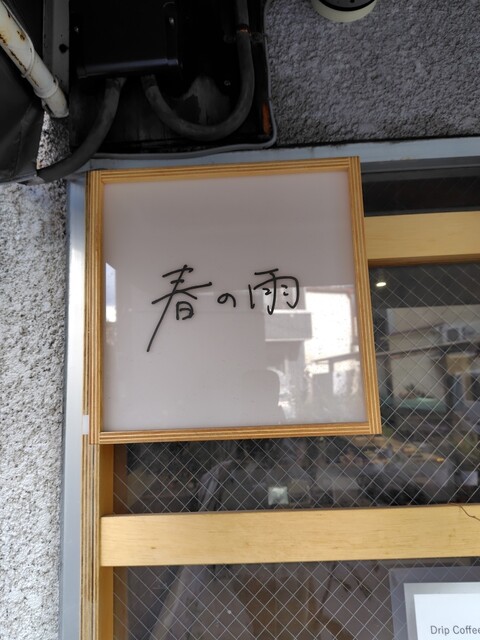 春の雨
Drip Coffee